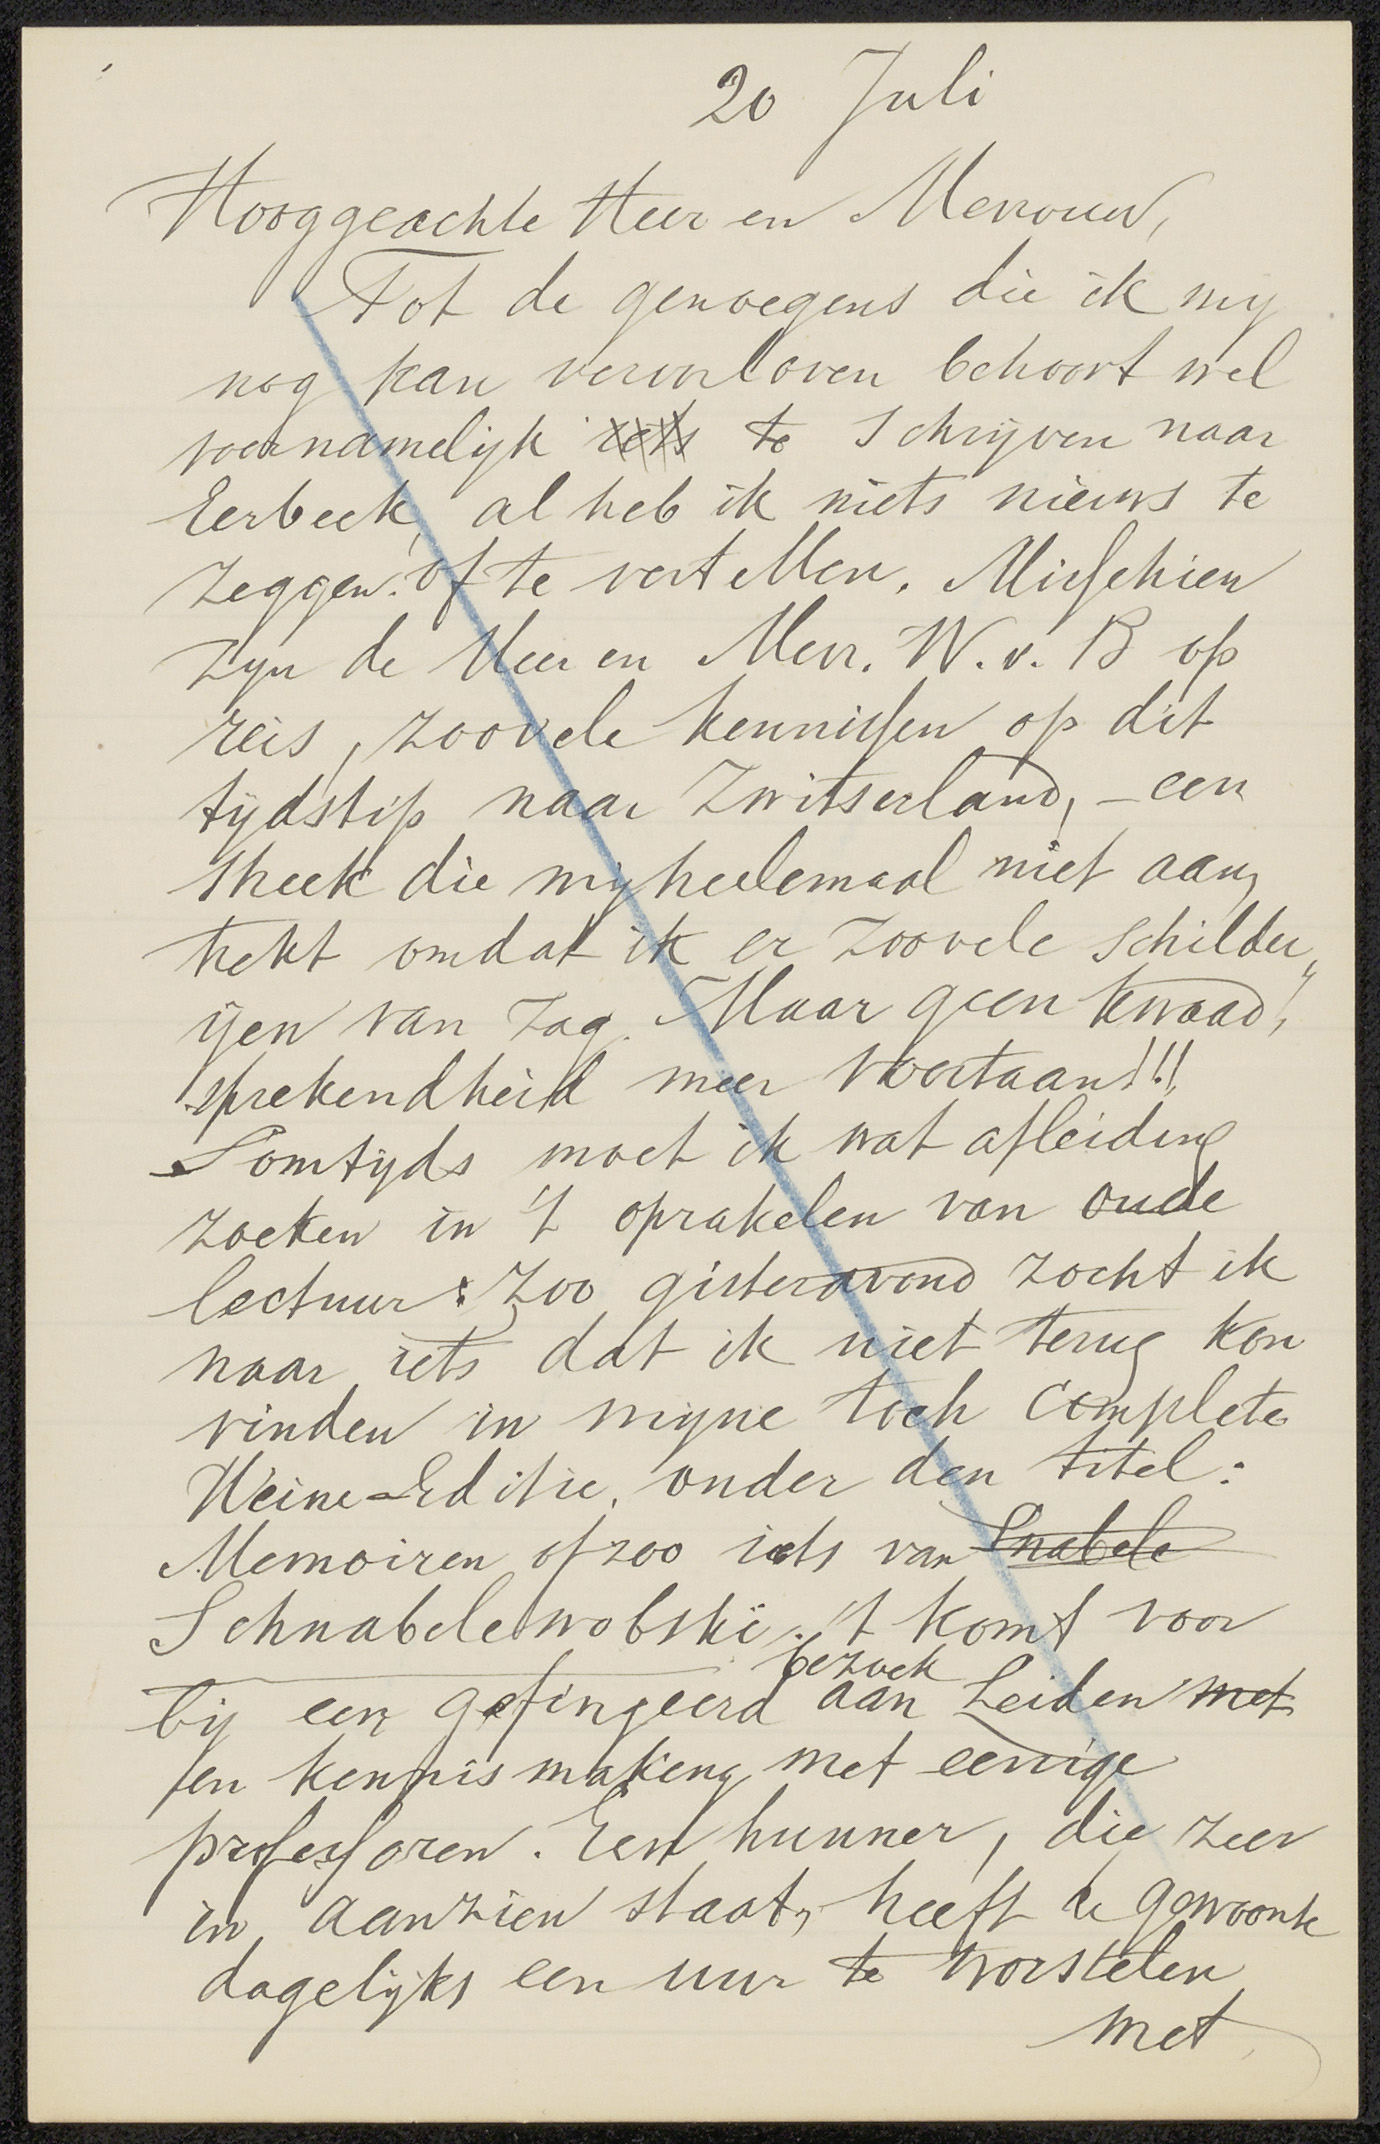 20 Juli
Hooggeachte Heer en Mevrouw,
Tot de genoegens die ik my
nog kan veroorloven behoort wel
voornamelijk iets te schrijven naar
Eerbeek, al heb ik niets nieuws te
zeggen of te vertellen. Misschien
zyn de Heer en Mevr. W. v. B op
reis, zoovele kennissen op dit
tydstip naar Zwitserland, – een
streek die my heelemaal niet aan„
trekt omdat ik er zoovele schilder„
ijen van zag. Maar geen kwaad„
sprekendheid meer voortaan!!!
Somtyds moet ik wat afleiding
zoeken in 't oprakelen van oude
lectuur: Zoo gisteravond zocht ik
naar iets dat ik niet terug kon
vinden in myne toch complete
Heine-Editie, onder den titel:
Memoiren of zoo iets van Snabele
Schnabelewobski. 't komt voor
by een gefingeerd bezoek aan Leiden met
en kennismaking met eenige
professoren. Een hunner, die zeer
in aanzien staat, heeft de gewoonte
dagelijks een uur te worstelen
met